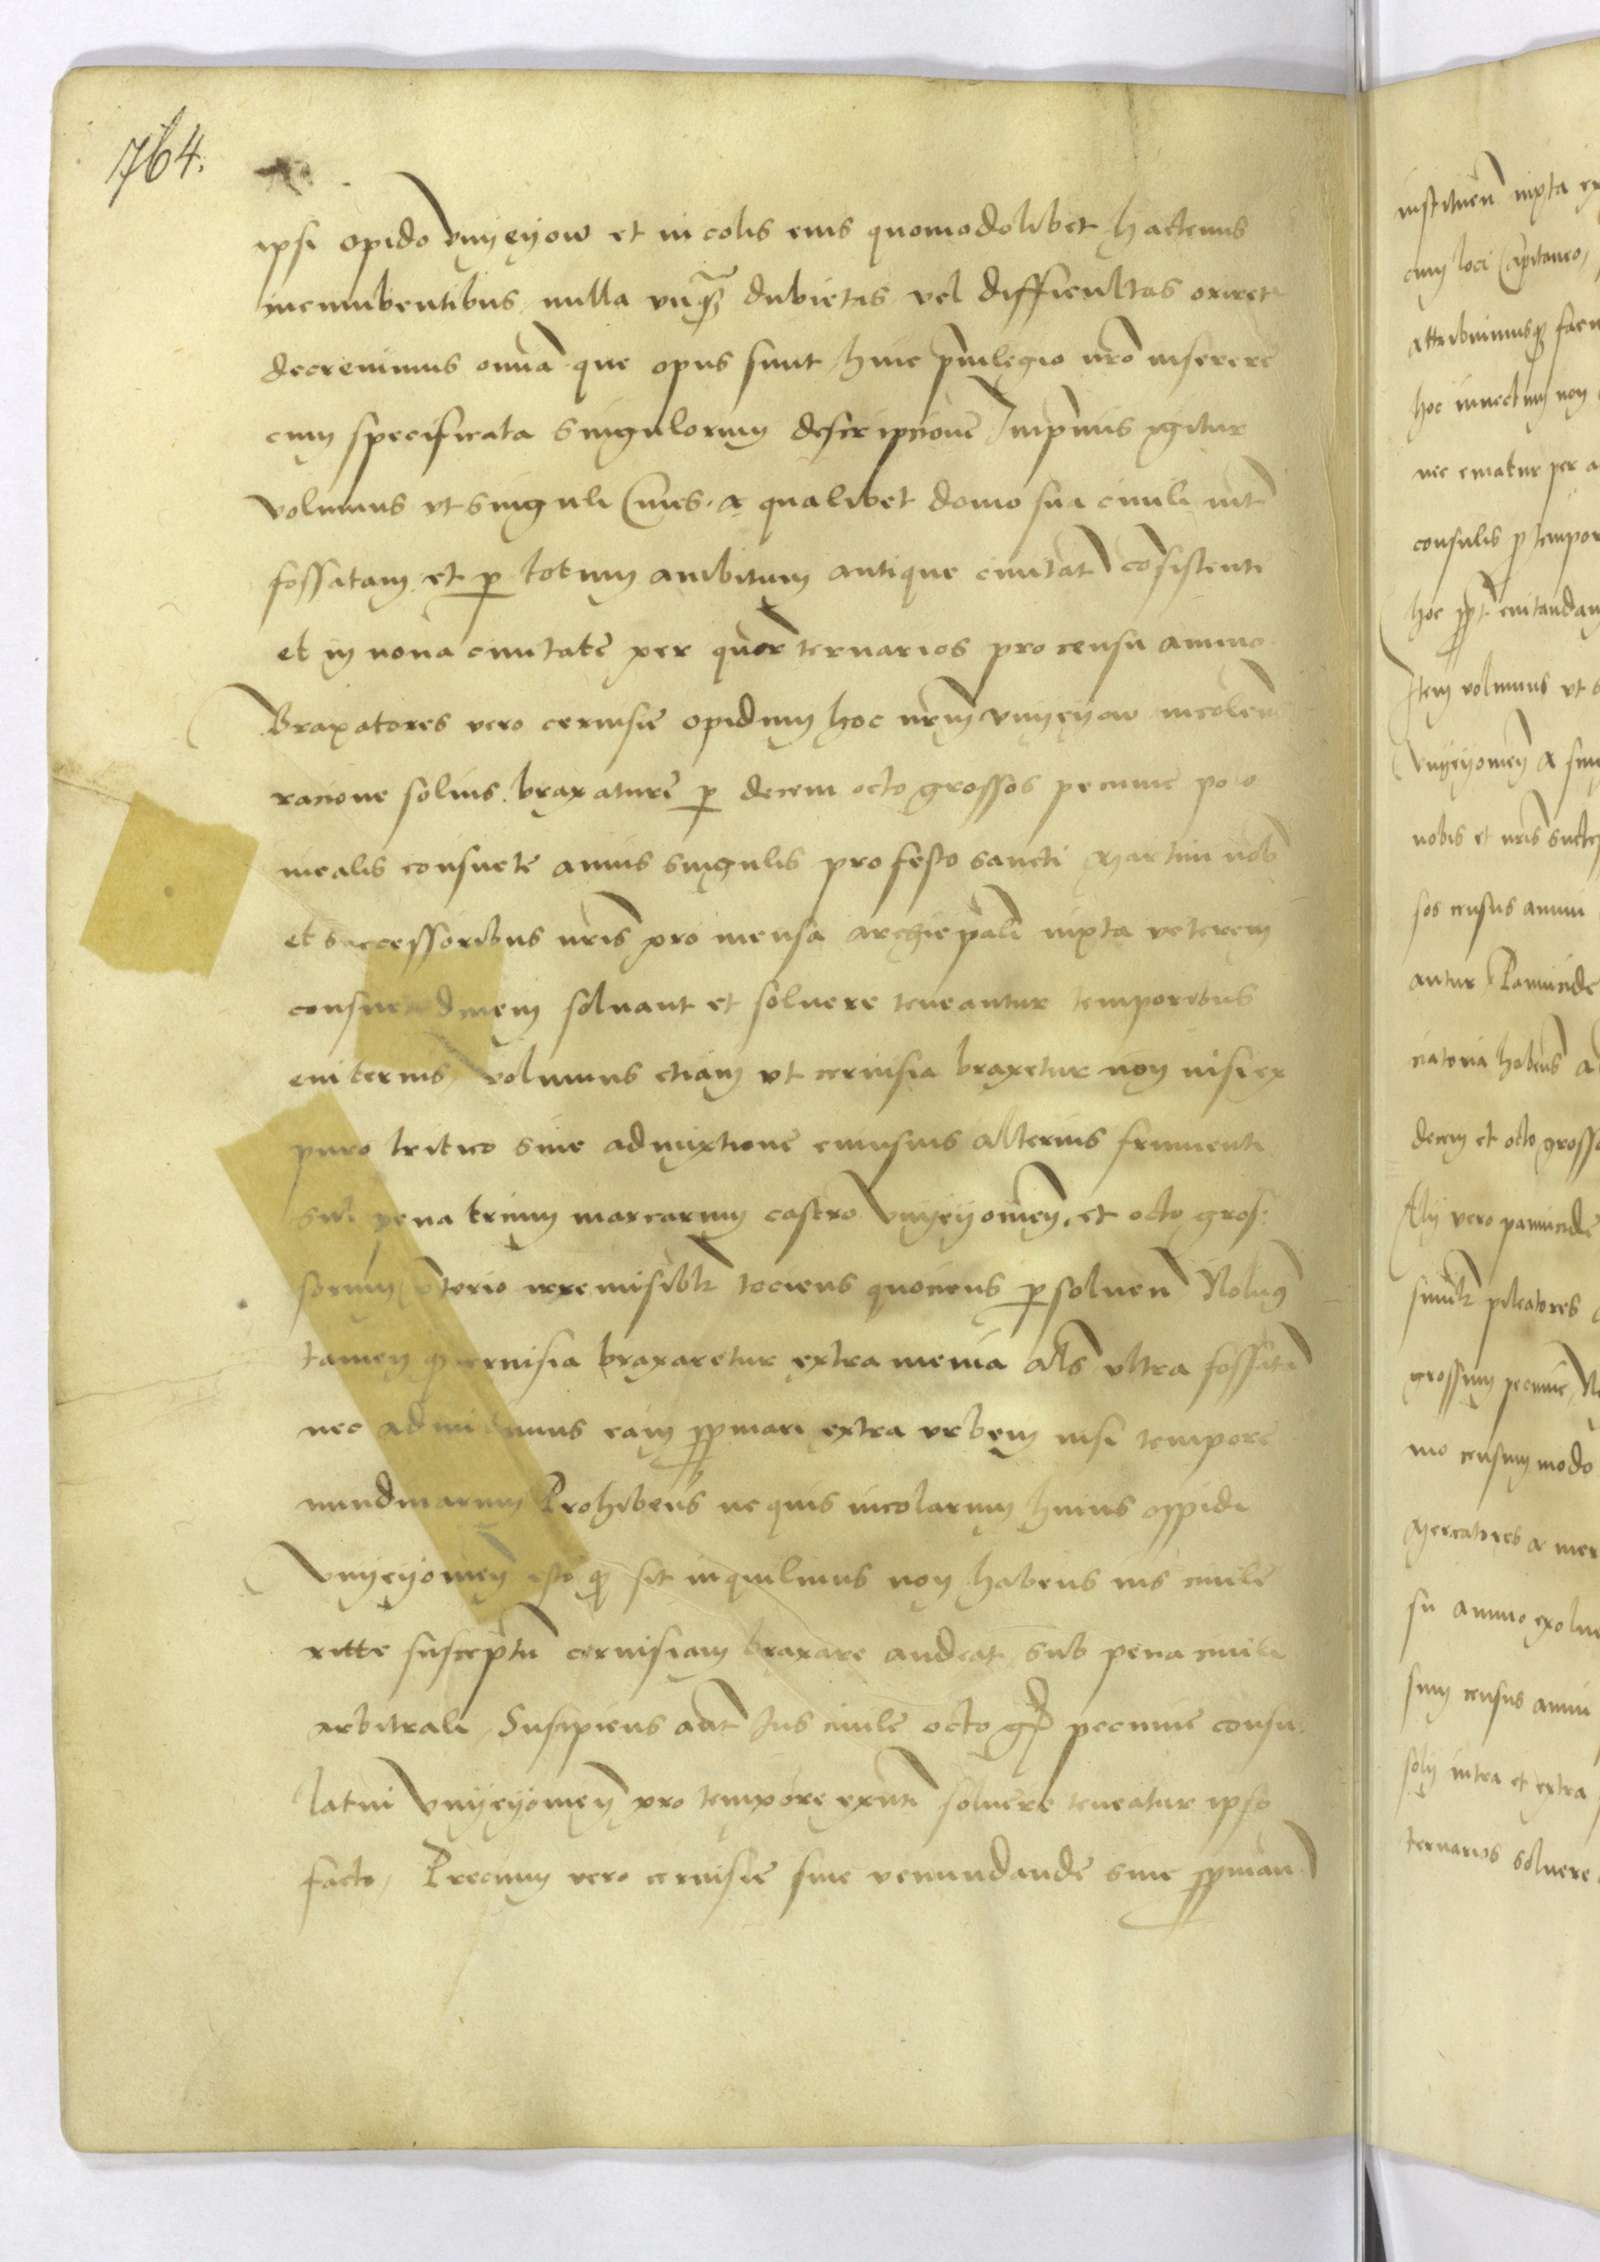 764.
ipsi opido Vnyeyow et incolis eius quomodolibet hactenus
incumbentibus nulla vnq̃ dubietas vel difficultas oriret
decreuimus om̃ia que opus sunt huic priuilegio nr̃o inserere
cum specificata singulorum descripcione Inprimis igitur
volumus vt singuli Ciues a qualibet domo sua ciuili int̃
fossatam et p totum ambitum antique ciuitat̃ cõsistenti
et in noua ciuitate per quor ternarios pro censu annuo
Braxatores vero ceruisie opidum hoc nr̃m Vnyeyow incolen̄
racione solius braxature p decem octo grossos pecunie polo
nicalis consuete annis singulis pro festo sancti Martini nob̃
et successoribus nr̃is pro mensa archiep̄ali iuxta veterem
consuetudinem soluant et soluere teneantur temporibus
euiternis volumus etiam vt ceruisia braxetur non nisi ex
puro tritico sine admixtione cuiusuis alterius frumenti
sub pena trium marcarum castro Vnyeyomen̄ et octo gros:
sorum p̄torio irremisiblr̃ tociens quociens psoluen̄ Nolum9
tamen q ceruisia braxaretur extra menia als̃ vltra fossatū
nec admittimus eam ppinari extra vrbem nisi tempore
nundinarum Prohiben̄s ne quis incolarum huius oppidi
Vnyeyomen̄ esto q sit inquilinus non habens ius ciuile
ritte susceptū ceruisiam braxare audeat sub pena ciuili
arbitrali, Suscipiens aūt Ius ciuile octo gr̃ pecunie consu:
latui Vnyeyomen̄ pro tempore exn̄ti soluere teneatur ipso
facto, Precium vero ceruisie siue venundande siue ppinan̄
instituen̄ iuxta ex
cum loci Capitaneo,
attribuimusq̃ facu
hoc inuectum non
nec ematur per a
consulis p tempor
hoc ppt̃ euitandam
Item volumus vt s
Vnyeyomen̄ a sin
nobis et nr̃is succes
sos census annui
antur Pannicide
ciatoria haben̄s a
decem et octo grosso
Alij vero pannicide
simil̃r pileatores
grossum pecunie, N
mo censum modo
Mercatores a mer
su annuo exolue
sum census annui
solū intra et extra
ternarios soluere